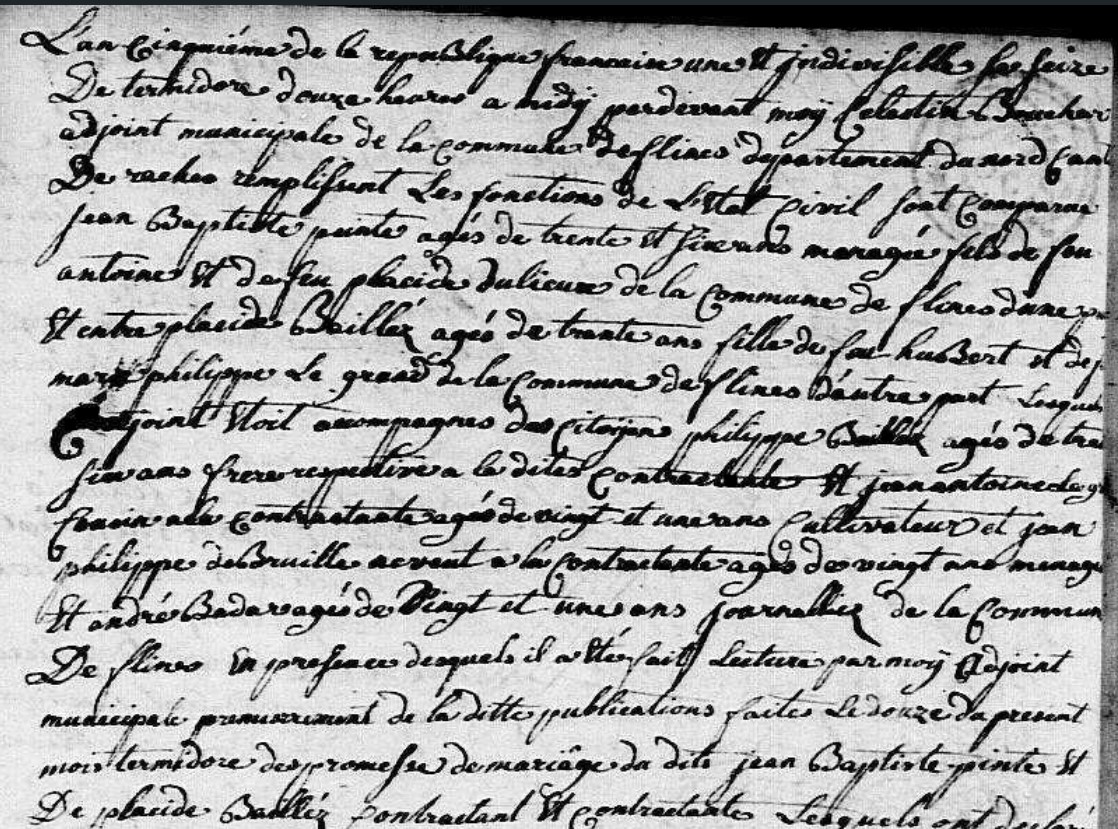 L'an Cinquiéme de la republique francaise une et jndivisible la seize
De termidore douze heures a midÿ pardevant moÿ Celestin Boucher
adjoint municipale de la commune de flines departement du nord Can
De raches remplissent Les fonctions de L'Etat Civil sont Comparue
jean Baptiste pinte agés de trente et sixe ans managée fils de feu
antoine et de feu placide Dulieux de la Commune de flines dune
Et entre placide Baillez agés de trante ans fille de feu huBert et de
marie philippe Le grand de la Commune de flines d'autre part Lesquel
joint Etoit accompagnes des Citoyens philippe Baillez agés de tra
six ans frere a la dites Contractante Et jean antoine Le g
Cousin a la Contractante agés de vingt et une ans Cultivateur et jean
philippe deBruille neveut a la Contractante agés de vingt ans menage
Et andré Badar agés de Vingt et une ans journallier de la Commun
De flines En presence desquels il a Eté fait Lecture par moÿ Adjoint
municipale premierement de la ditte publications faites Le douze du present
mois termidore des promesse de mariâge du dits jean Baptiste pinte Et
De placide Baillez Contractant Et Contractante Lesquels ont declaré